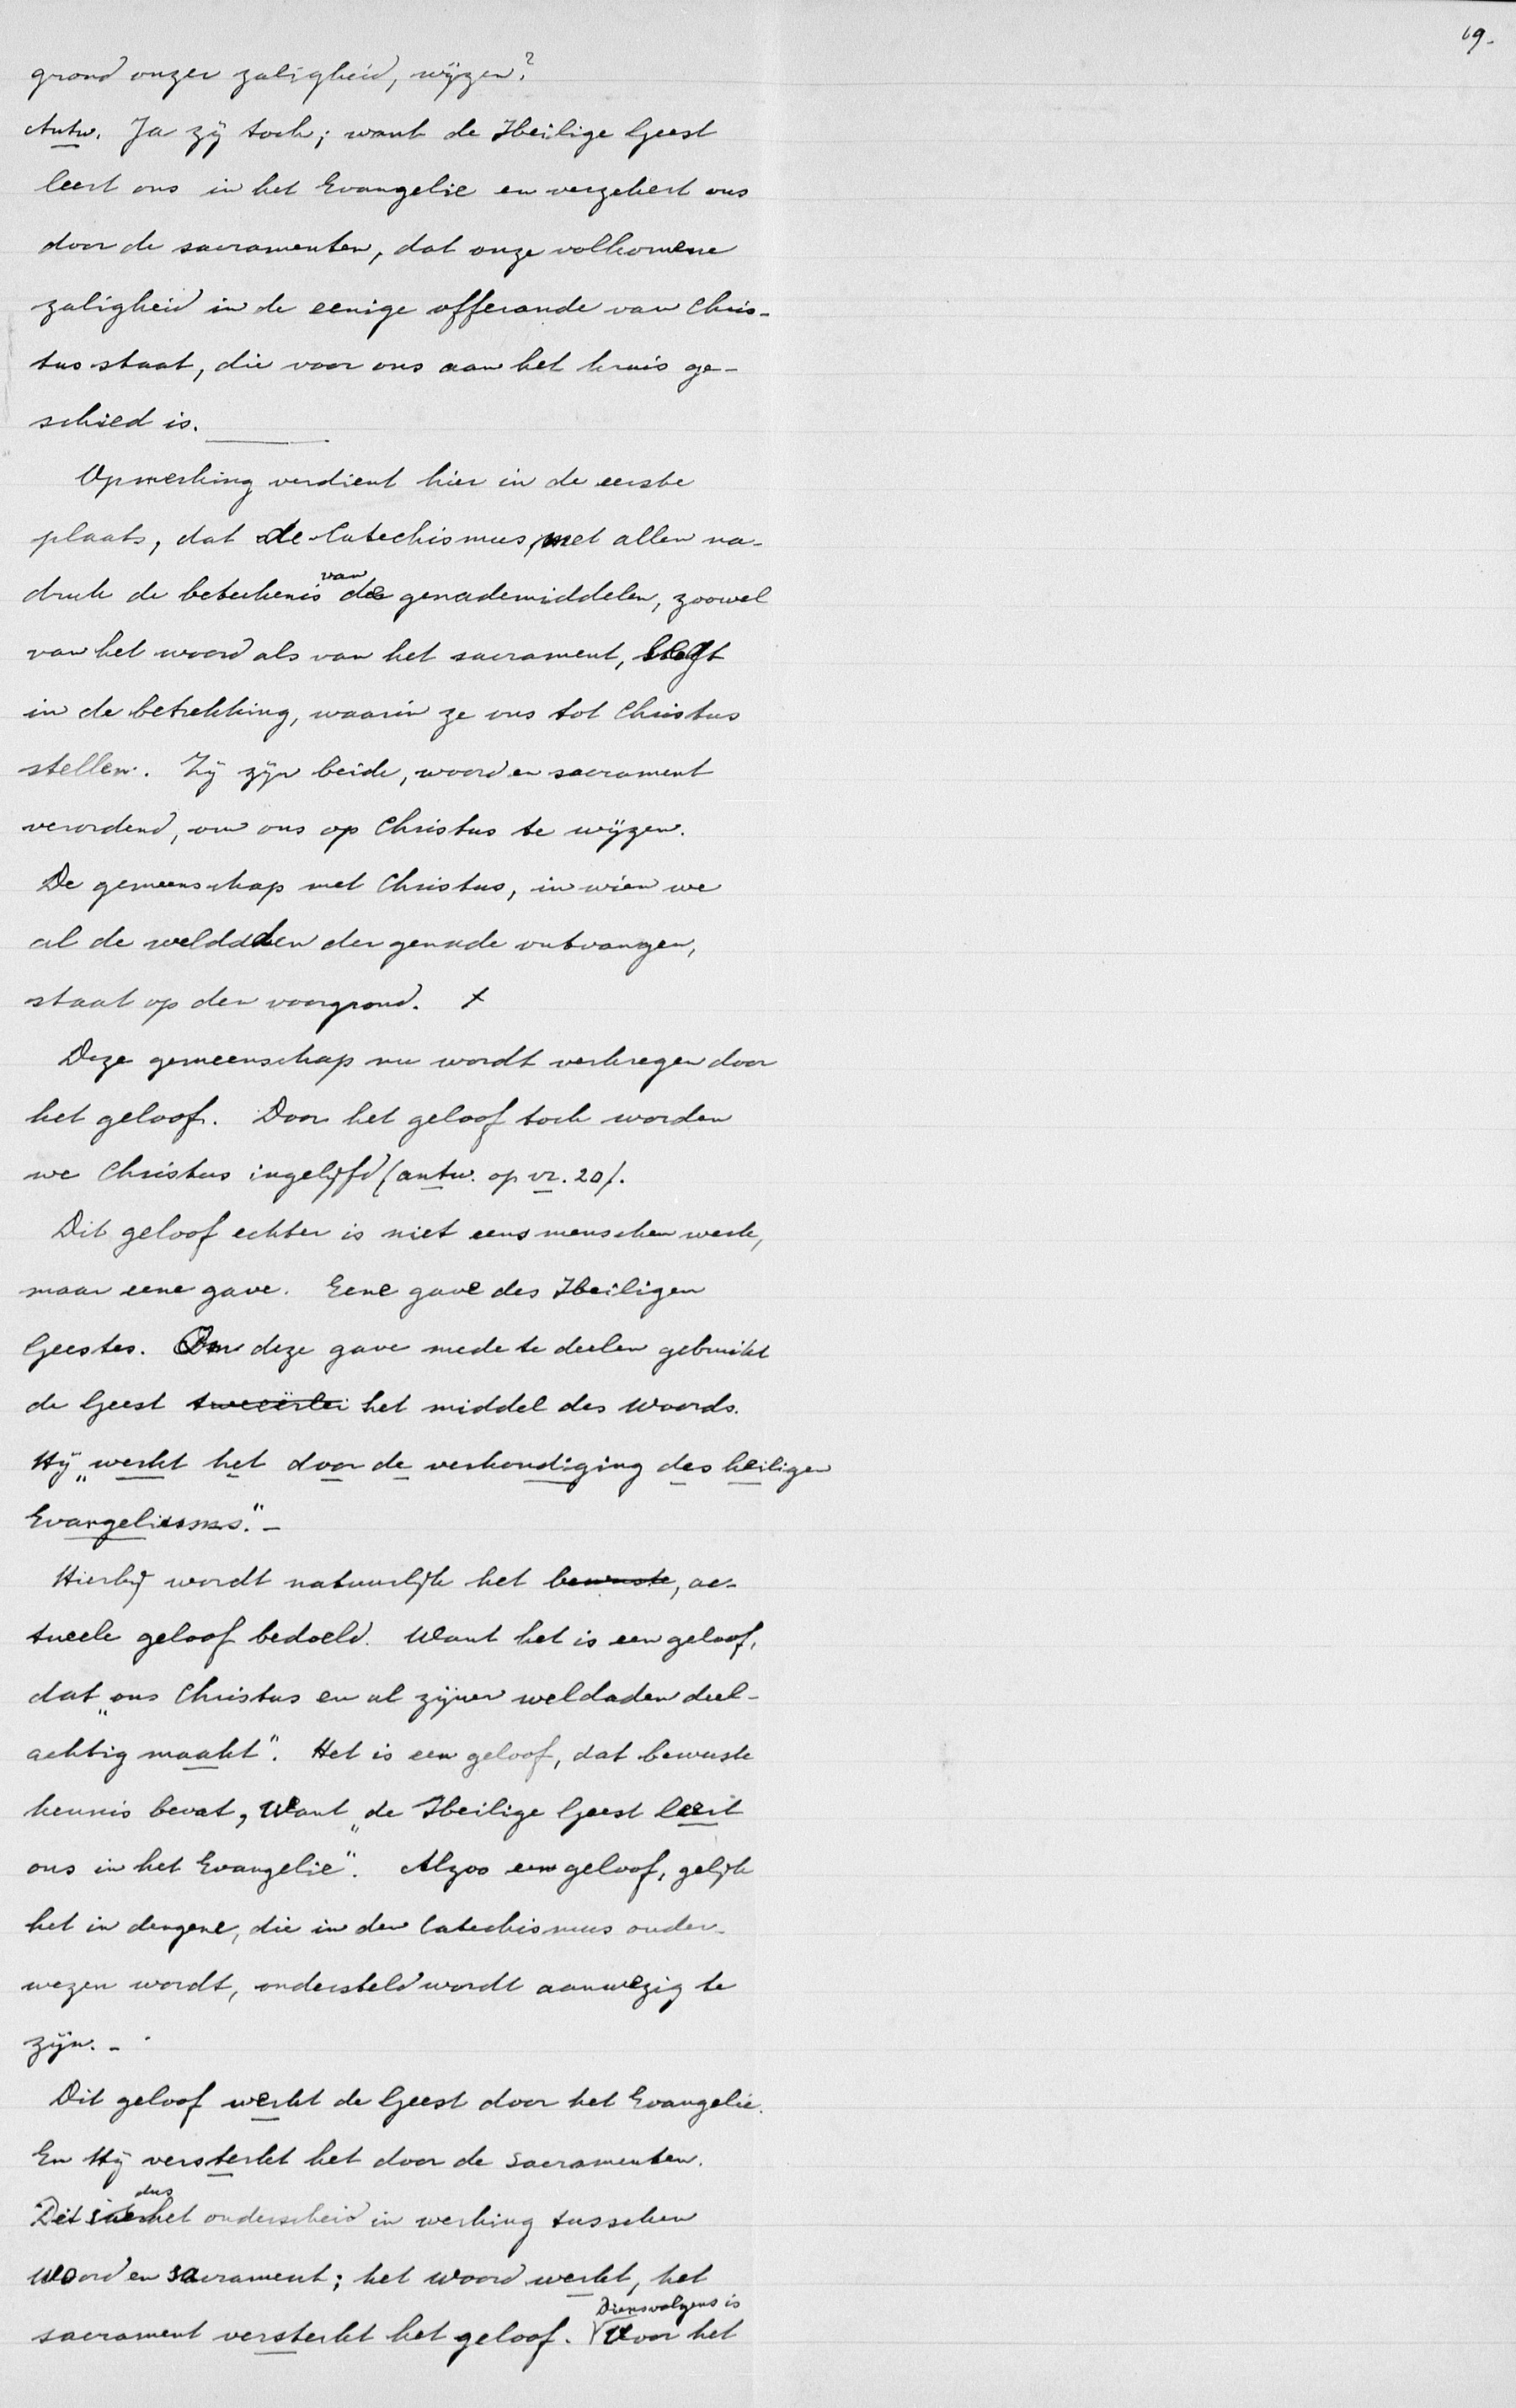 19.
grond onzer zaligheid, wijzen?
Antw. Ja zij toch; want de Heilige Geest
leert ons in het Evangelie en verzekert ons
door de sacramenten, dat onze volkomene
zaligheid in de eenige offerande van Chris-
tus staat, die voor ons aan het kruis ge-
schied is.
Opmerking verdient hier in de eerste
plaats, dat de Catechismus, met allen na-
druk de beteekenis van de genademiddelen, zoowel
van het woord als van het sacrament, legt
in de betrekking, waarin ze ons tot Christus
stellen. Zij zijn beide, woord en sacrament
verordend, om ons op Christus te wijzen.
De gemeenschap met Christus, in wien we
al de weldaden der genade ontvangen,
staat op den voorgrond. x
Deze gemeenschap nu wordt verkregen door
het geloof. Door het geloof toch worden
we Christus ingelijfd (antw. op vr. 20).
Dit geloof echter is niet eens menschen werk,
maar eene gave. Eene gave des Heiligen
Geestes. Om deze gave mede te deelen gebruikt
de Geest tweeërlei het middel des Woords.
Hij „werkt het door de verkondiging des heiligen
Evangeliums." -
Hierbij wordt natuurlijk het bewuste, ac-
tueele geloof bedoeld. Want het is een geloof,
dat „ons Christus en al zijner weldaden deel-
achtig maakt". Het is een geloof, dat bewuste
kennis bevat, Want „de Heilige Geest leert
ons in het Evangelie". Alzoo een geloof, gelijk
het in dengene, die in den Catechismus onder-
wezen wordt, ondersteld wordt aanwezig te
zijn. -
Dit geloof werkt de Geest door het Evangelie.
En Hij versterkt het door de Sacramenten.
Dit is dus het onderscheid in werking tusschen
Woord en Sacrament; het woord werkt, het
sacrament versterkt het geloof. Diensvolgens is Voor het